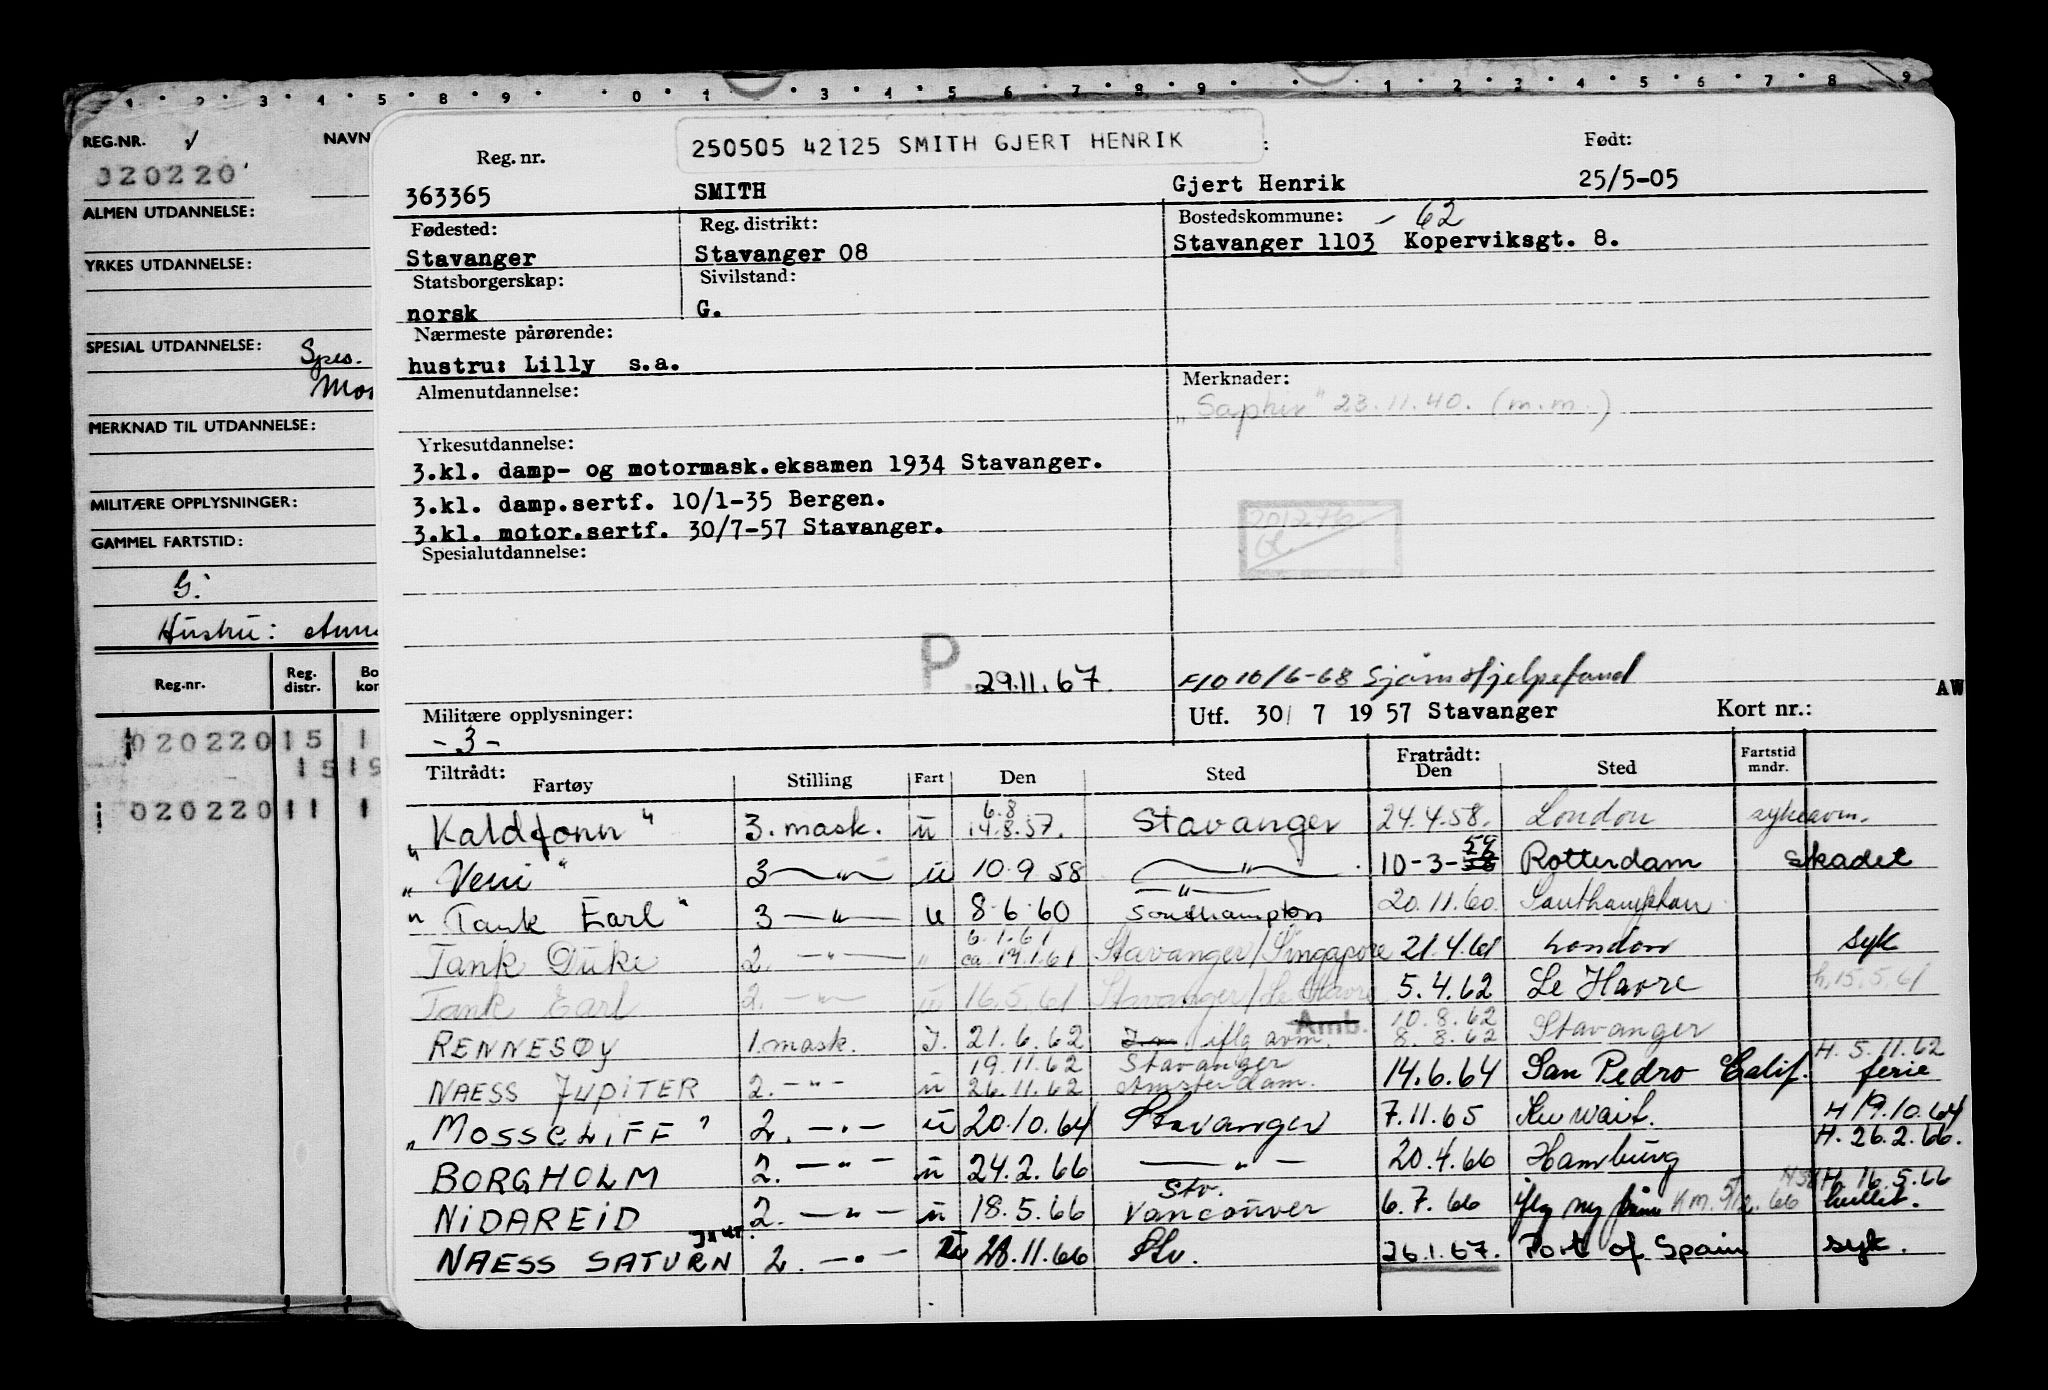 1 2 3 4 5 8 9 0 1 3 4 5 6 7 8 9 1 2 3 4 5 6 7 8 9
REG.NR. NAVN
020220
ALMEN UTDANNELSE:
YRKES UTDANNELSE:
SPESIAL UTDANNELSE: Spes.
MERKNAD TIL UTDANNELSE:
MILITÆRE OPPLYSNINGER:
GAMMEL FARTSTID:
G.
Hustru:
Reg.nr. Reg. distr. Bo kor
020220 15 1
15 19
020220 11 1
250505 42125 SMITH GJERT HENRIK
Reg. nr. : Født:
363365 SMITH Gjert Henrik 25/5-05
Fødested: Reg. distrikt: Bostedskommune: - 62
Stavanger Stavanger 08 Stavanger 1103 Koperviksgt. 8.
Statsborgerskap: Sivilstand:
norsk G.
Nærmeste pårørende:
hustru: Lilly s.a.
Almenutdannelse: Merknader:
"Saphir" 23.11.40. (m.m.)
Yrkesutdannelse:
3.kl. damp- og motormask.eksamen 1934 Stavanger.
3.kl. damp.sertf. 10/1-35 Bergen.
3.kl. motor.sertf. 30/7-57 Stavanger.
Spesialutdannelse:
P 29.11.67. 10/6-68 Sjøm.Hjelpefond
AW
Militære opplysninger: Utf. 30/ 7 1957 Stavanger Kort nr.:
- 3 -
Tiltrådt: Fratrådt: Fartstid mndr.
Fartøy Stilling Fart Den Sted Den Sted
"Kaldfonn" 3. mask. u 6.8 14.8.57. Stavanger 24.4.58. London sykeavm.
"Veni" 3 — " — u 10.9 58 — " — 10-3-59 Rotterdam skadet
"Tank Earl" 3 — " — u 8.6.60 — " — Southampton 20.11.60. Southampton
Tank Duke 2. — " — " 6.1.61 ca. 19.1.61 Stavanger/Singapore 21.4.61 London syk
Tank Earl 2. — " — u 16.5.61 Stavanger/Le Havre 5.4.62 Le Havre h. 15.5.61
Amb.
RENNESØY 1. mask. I. 21.6.62 iflg avm. 10.8.62 8.8.62 Stavanger
NAESS JUPITER 2. - " - u 19.11.62 26.11.62 Stavanger Amsterdam. 14.6.64 San Pedro Calif. H. 5.11.62 ferie
"MOSSCLIFF" 2. — " — u 20.10.64 Stavanger 7.11.65 Kuwait. H 19.10.64
BORGHOLM 2. — " — u 24.2.66 — " — 20.4.66 Hamburg H. 26.2.66.
NIDAREID 2. — " — u 18.5.66 Stv. Vancouver 6.7.66 iflg ny H. 16.5.66
NAESS SATURN 2. — " — u 28.11.66 Stv. 26.1.67. Port of Spain syk.